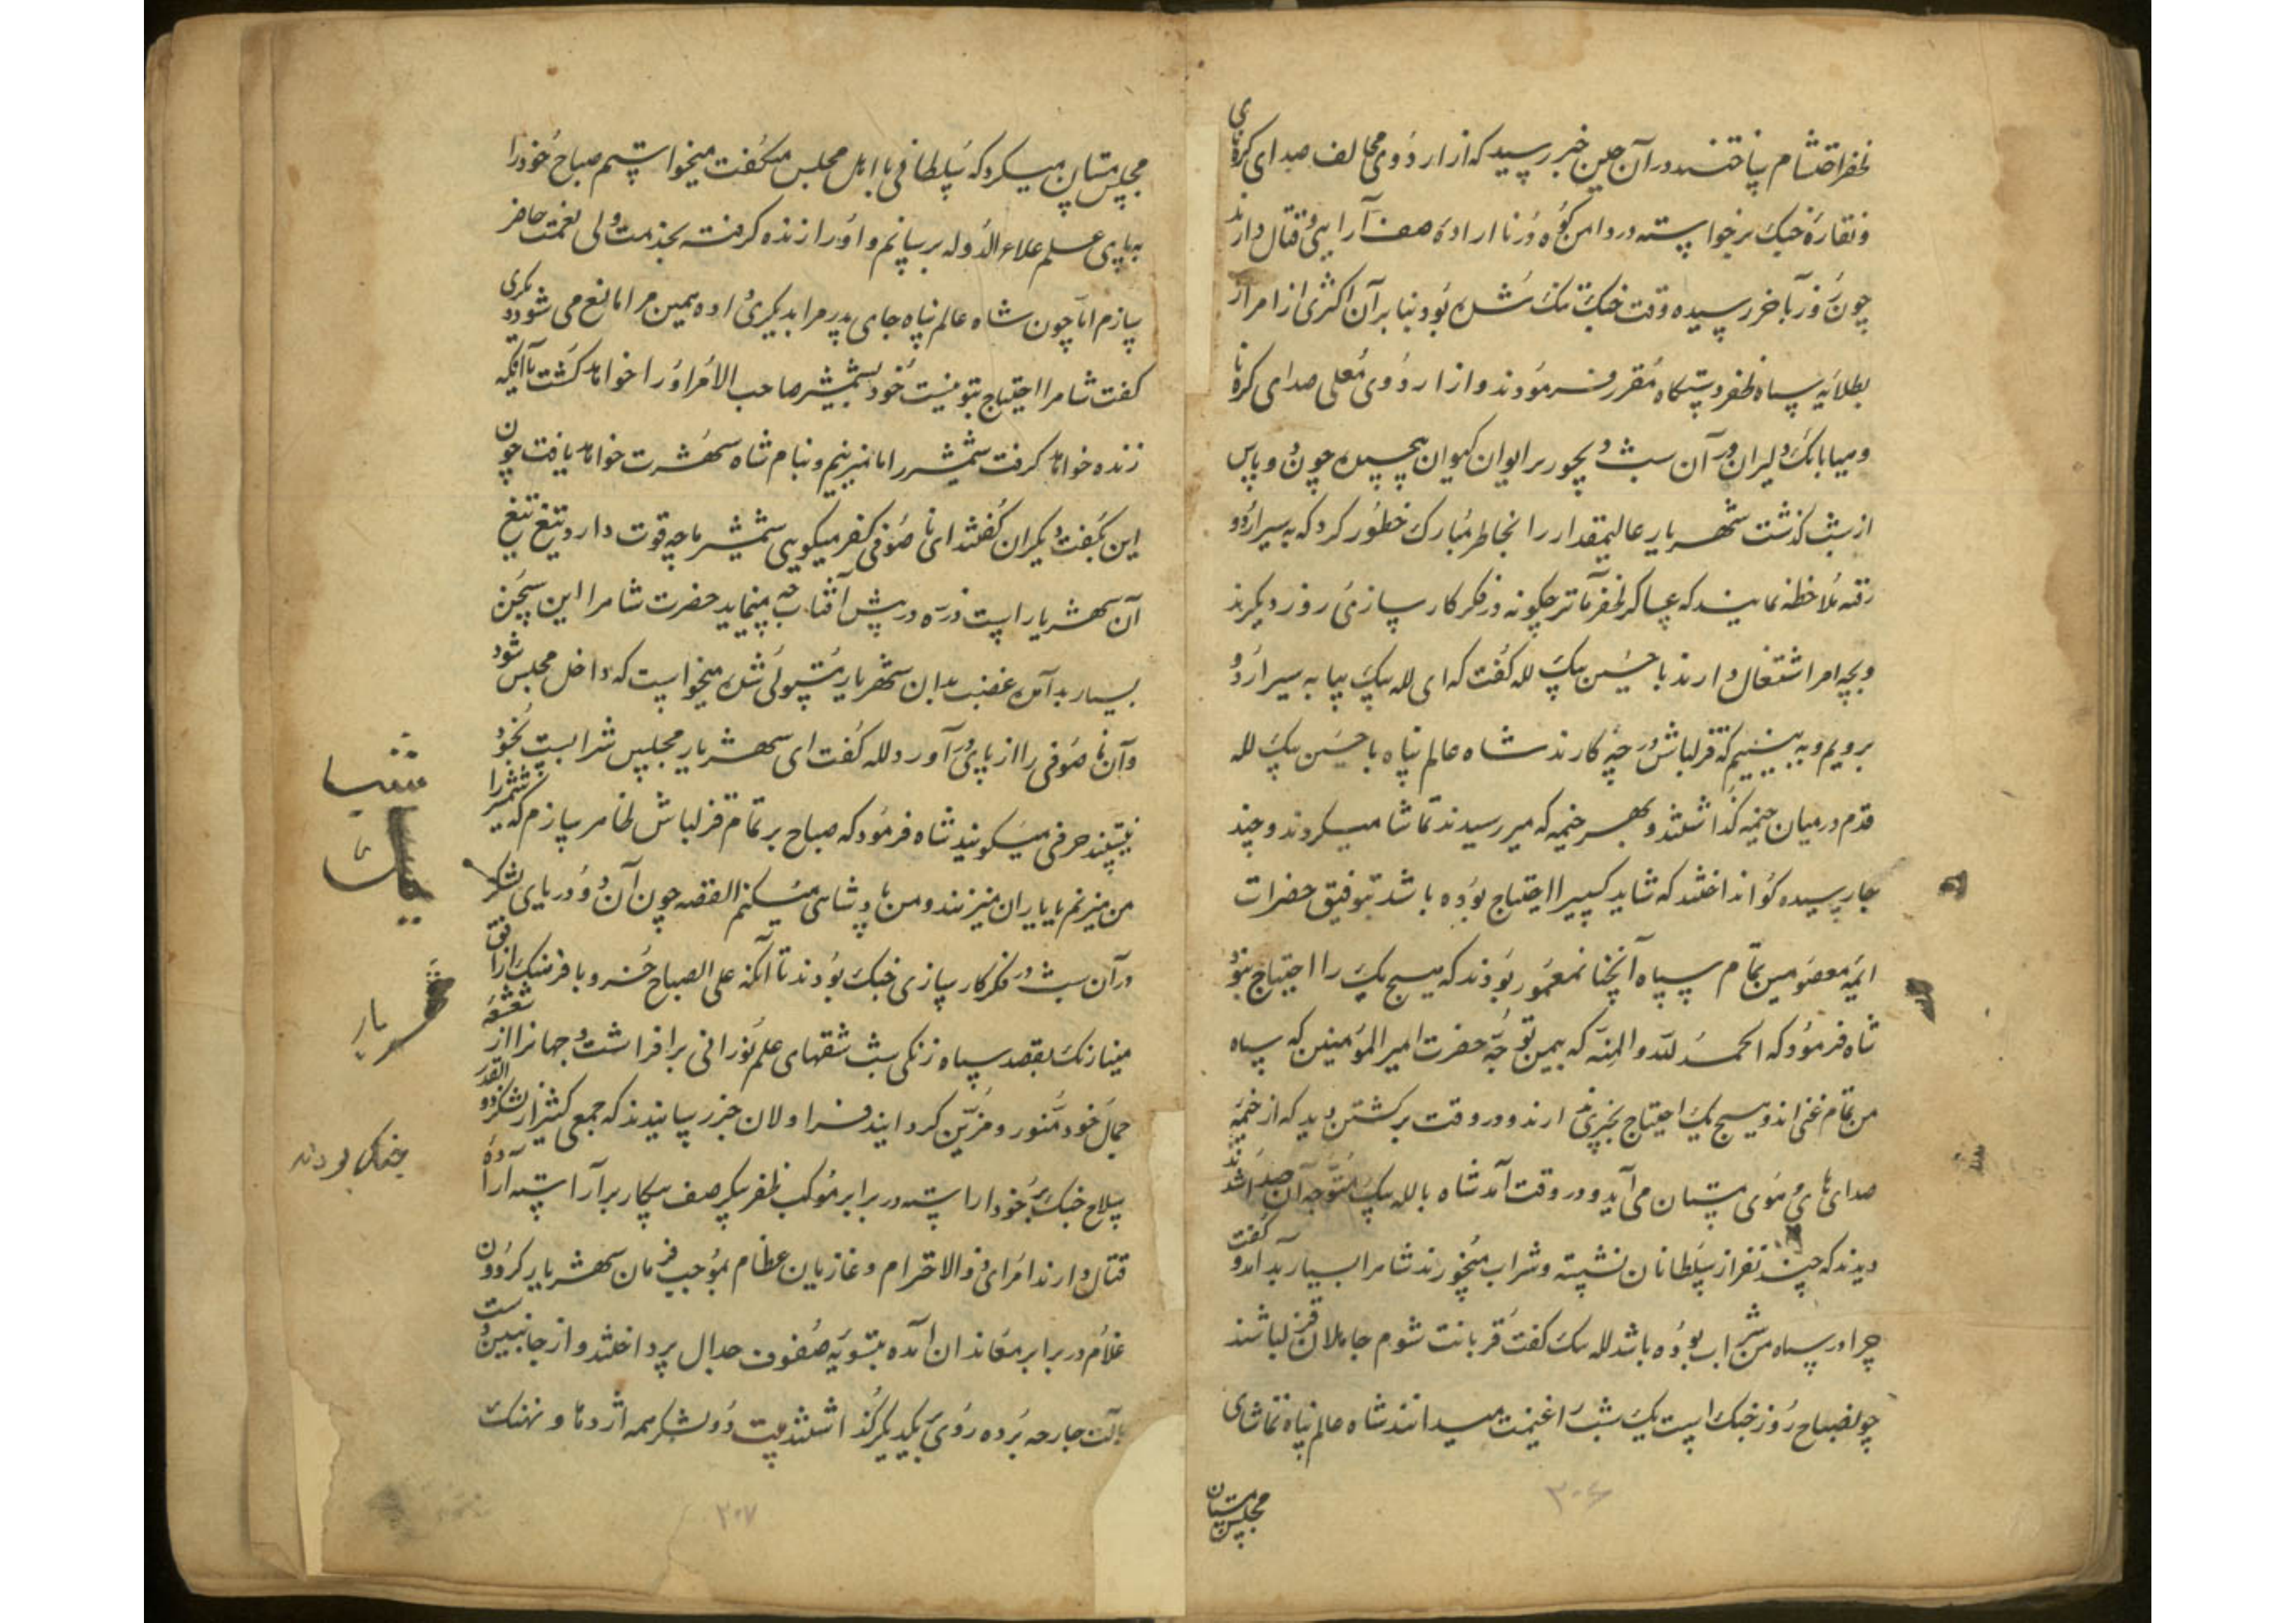 ظفر احتشام ساختند در آن حین خبر رسید که از اردوی مخالف صدای کرنای
و نقاره جنگ برخواسته در دامن کوه دُرنا اراده صف آرایی و قتال دارند
چون روز بآخر رسیده وقت جنگ تنک شده بود بنا بر آن اکثری از امرا از
بطلایه سپاه ظفر دستگاه مقرر فرمودند و از اردوی مُعلی صدای کرنا
و میابانک دلیران در آن شب دیجور بر ایوان کیوان پیچیده چون دو پاس
از شب گذشت شهریار عالیمقدار را بخاطر مبارک خطور کرد که به سیر اردو
رفته ملاحظه نمایند که عساکر ظفر مآثر چگونه در فکر کار سازی روز دیگرند
و بچه امر اشتغال دارند با حسین بیک لله گفت که ای لله بیک بیا به سیر اردو
برویم و به بینیم که قزلباش در چه کارند شاه عالم پناه با حسین بیک لله
قدم در میان خیمه گذاشتند و بهر خیمه که میرسیدند تماشا میکردند و چند
جا رسیده کو انداختند که شاید کسیرا احتیاج بوده باشد بتوفیق حضرات
ائمه معصومین تمام سپاه آنچنان معمور بودند که هیچ یک را احتیاج نبود
شاه فرمود که الحمد لله والمنه که بیمن توجه حضرت امیر المؤمنین که سپاه
من تمام غنی اند و هیچ یک احتیاج بچیزی ندارند و در وقت برگشتن دید که از خیمه
صدای های و هوی مستان می آید و در وقت آمد شاه با لله بیک متوجه آن صدا شدند
دیدند که چند نفر از سلطانان نشسته و شراب میخورند شاه را بسیار بد آمد و گفت
چرا در سپاه من شراب بوده باشد لله بک گفت قربانت شوم جاهلان قزلباشند
چو لصباح روز جنگ است یک شب را غنیمت میدانند شاه عالم پناه تماشای
مجلس مستان
۳۰۶
مجلس مستان میکرد که سلطانی با اهل مجلس میگفت میخواستم صباح خود را
به پای علم علاء الدوله برسانم و او را زنده گرفته بخدمت ولی نعمت حاضر
سازم اما چون شاه عالم پناه جای پدر مرا بدیگری داده همین مرا مانع می شود دیگری
گفت شاه را احتیاج بتو نیست خود بشمشیر صاحب الامر او را خواهد کشت یا آنکه
زنده خواهد گرفت شمشیر را ما میزنیم و بنام شاه شهرت خواهد یافت چون
این بگفت دیگران گفتند ای نا صوفی کفر میگویی شمشیر ما چه قوت دارد تیغ تیغ
آن شهریار است ذره در پیش آفتاب چه مینماید حضرت شاه را این سخن
بسیار بد آمده غضب بدان شهریار مستولی شده میخواست که داخل مجلس شود
و آن نا صوفی را از پای در آورد لله گفت ای شهریار مجلس شرابست بخود
نیستند حرفی میگویند شاه فرمود که صباح بر تمام قزلباش ظاهر سازم که شمشیر را
من میزنم یا یاران میزنند و من پادشاهی میکنم القصه چون آن دو دریای لشکر
در آن شب در فکر کار سازی جنگ بودند تا آنکه علی الصباح خسرو با فرهنگ از افق
مینا رنک بقصد سپاه زنگی شب شقهای علم نورانی بر افراشت و جهانرا از شعشعه
جمال خود منور و مزین گردانید قراولان خبر رسانیدند که جمعی کثیر از لشکر ذو القدر
سلاح جنگ بر خود آراسته در برابر موکب ظفر پیکر صف پیکار بر آراسته اراده
قتال دارند امرای ذوالاحترام و غازیان عظام بموجب فرمان شهریار گردون
غلام در برابر معاندان آمده بتسویه صفوف جدال پرداختند و از جانبین دست
بآلت جارحه برده روی بیکدیگر گذاشتند بیت دو لشکر همه اژدها و نهنک
یک
یار
جنگ بودند
۳۰۷